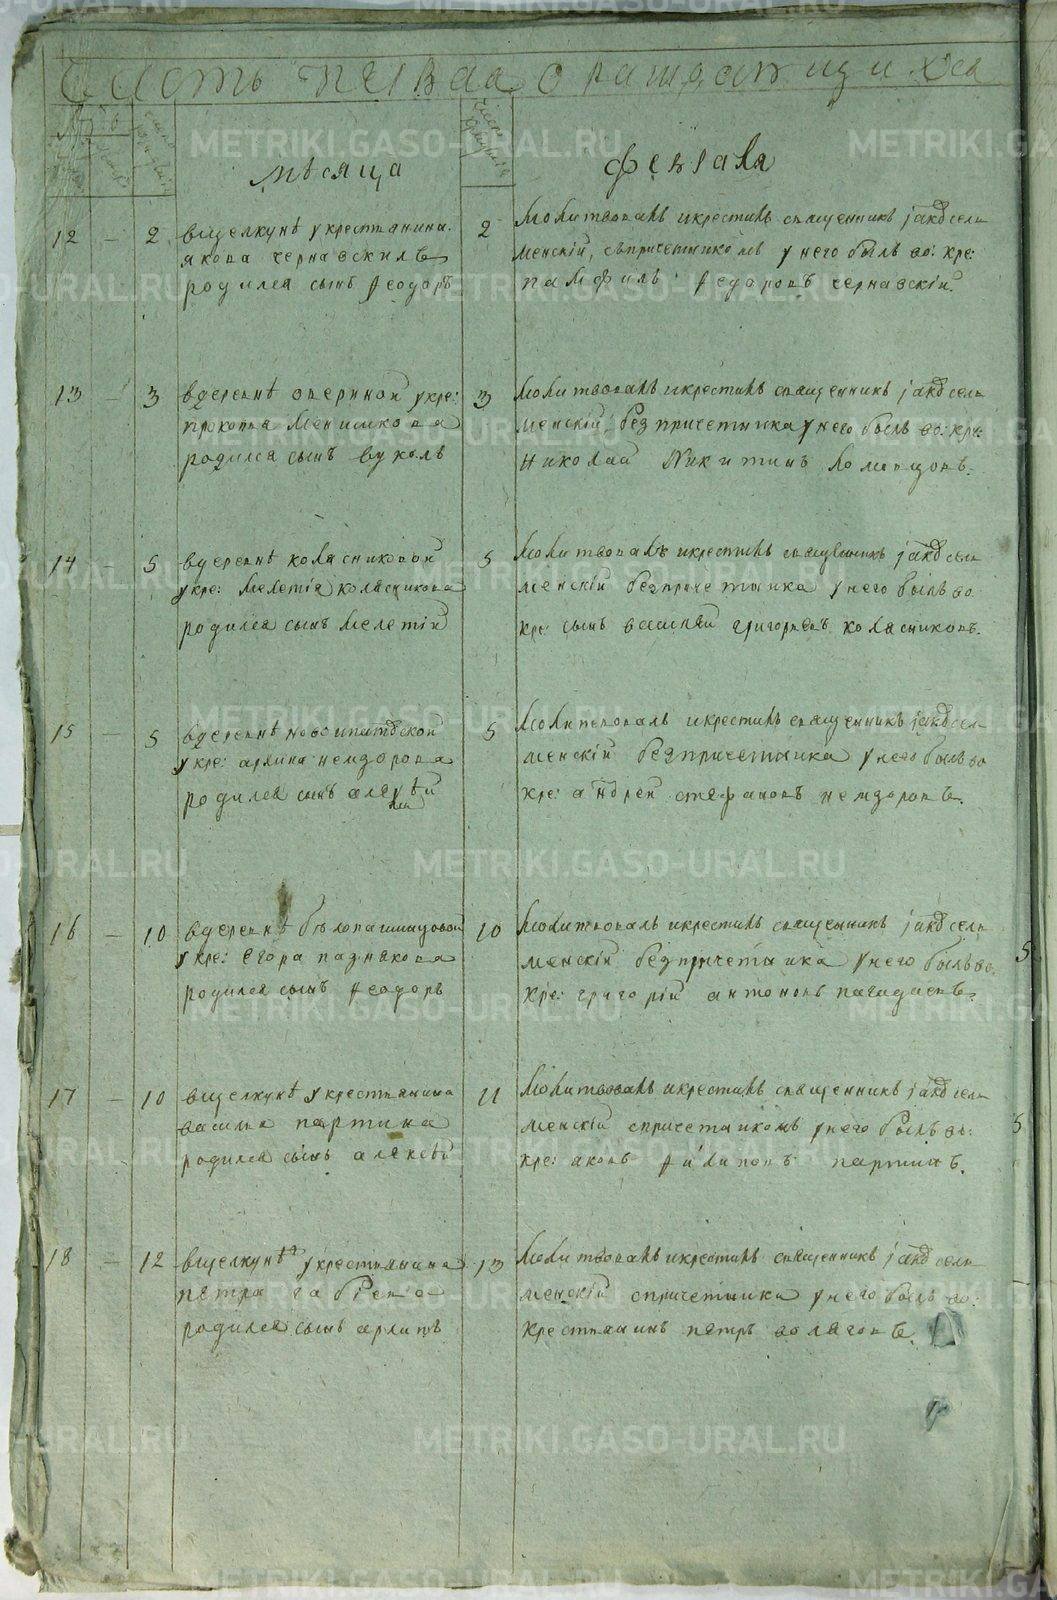 Часть первая о раждающихся
мѣсяца
февраля
12 — 2
вщелкунѣ укрестьянина
якова чернавскихъ
родился сынъ феодоръ
2
Молитвовалъ икрестилъ священникъ іаковъ сели
менскій, съпричетникомъ унего былъ во: кре:
памфилъ федоровъ чернавскій.
13 — 3
вдеревнѣ овериной укре:
прокопья Меншикова
родился сынъ вуколъ
3
Молитвовалъ икрестилъ священникъ іаковъ сели
менскій, безпричетника унего былъ во: кре:
николай Никитинъ
14 — 5
вдеревнѣ колясниковой
укре: Мелетія колясникова
родился сынъ Мелетій
5
Молитвовалъ икрестилъ священникъ іаковъ сели
менскій безпричетника унего былъ во:
кре: сынъ василій григорьевъ колясниковъ.
15 — 5
вдеревнѣ новоипатовской
укре:
родился сынъ
5
Молитвовалъ икрестилъ священникъ іаковъ сели
менскій безпричетника унего былъ во
кре: андрей стефановъ
16 — 10
вдеревнѣ
укре: егора пазнякова
родился сынъ феодоръ
10
Молитвовалъ икрестилъ священникъ іаковъ сели
менскій безпричетника унего былъ во:
кре: григорій антоновъ
17 — 10
вщелкунѣ укрестьянина
василья партина
родился сынъ алексѣй
11
Молитвовалъ икрестилъ священникъ іаковъ сели
менскій спричетникомъ унего былъ во:
кре: яковъ филиповъ партинъ.
18 — 12
вщелкунѣ укрестьянина
петра
родился сынъ архипъ
13
Молитвовалъ икрестилъ священникъ іаковъ сели
менскій спричетника унего былъ во:
крестьянинъ петръ волеговъ.
METRIKI.GASO-URAL.RU